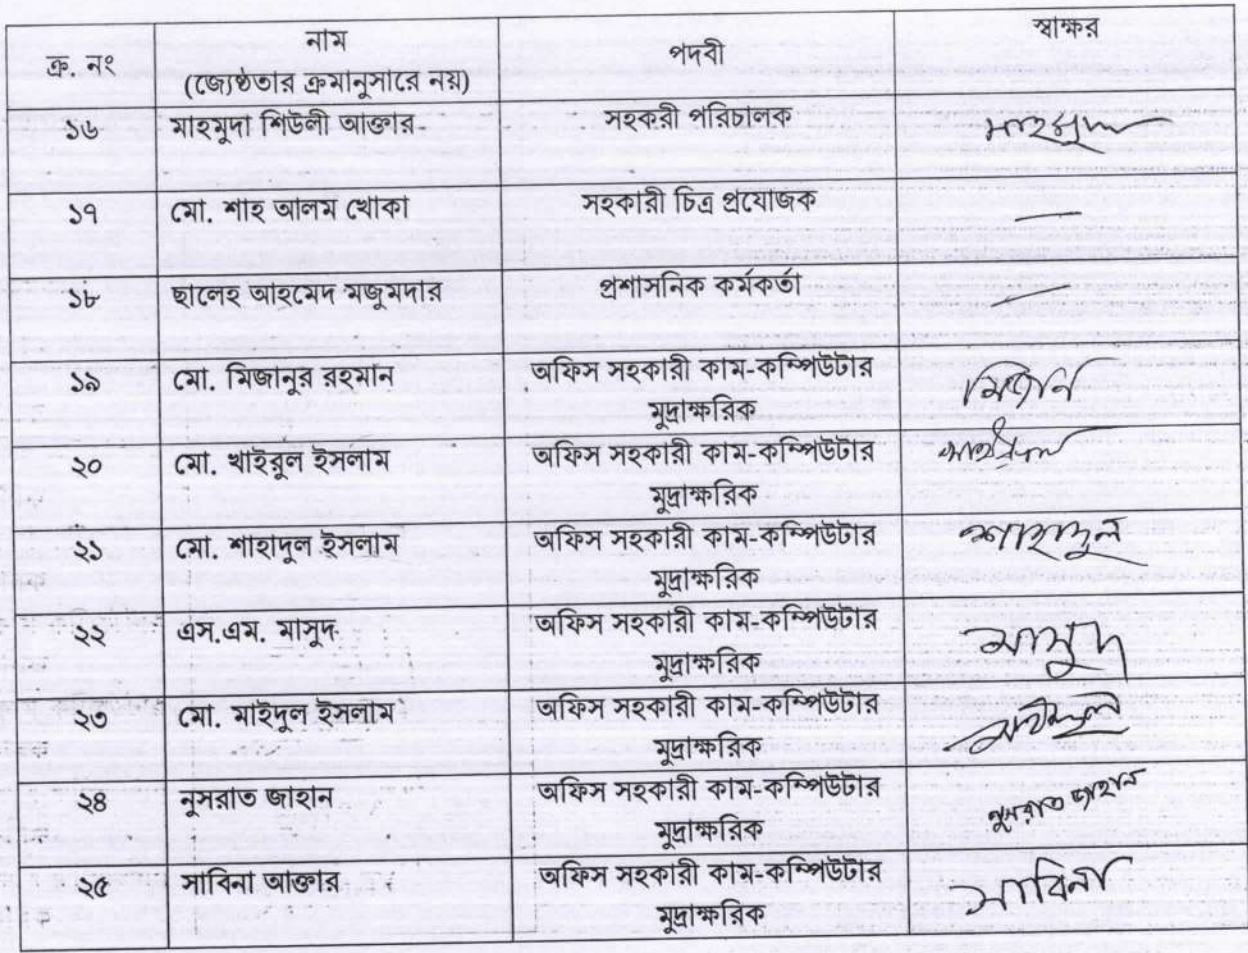 ক্র. নং নাম পদবী স্বাক্ষর
(জ্যেষ্ঠতার ক্রমানুসারে নয়)
১৬ মাহমুদা শিউলী আক্তার সহকরী পরিচালক মাহমুদা
১৭ মো. শাহ আলম খোকা সহকারী চিত্র প্রযোজক
১৮ ছালেহ আহমেদ মজুমদার প্রশাসনিক কর্মকর্তা
১৯ মো. মিজানুর রহমান অফিস সহকারী কাম-কম্পিউটার মিজান
মুদ্রাক্ষরিক
২০ মো. খাইরুল ইসলাম অফিস সহকারী কাম-কম্পিউটার
মুদ্রাক্ষরিক
২১ মো. শাহাদুল ইসলাম অফিস সহকারী কাম-কম্পিউটার শাহাদুল
মুদ্রাক্ষরিক
২২ এস.এম. মাসুদ অফিস সহকারী কাম-কম্পিউটার মাসুদ
মুদ্রাক্ষরিক
২৩ মো. মাইদুল ইসলাম অফিস সহকারী কাম-কম্পিউটার
মুদ্রাক্ষরিক
২৪ নুসরাত জাহান অফিস সহকারী কাম-কম্পিউটার নুসরাত জাহান
মুদ্রাক্ষরিক
২৫ সাবিনা আক্তার অফিস সহকারী কাম-কম্পিউটার সাবিনা
মুদ্রাক্ষরিক